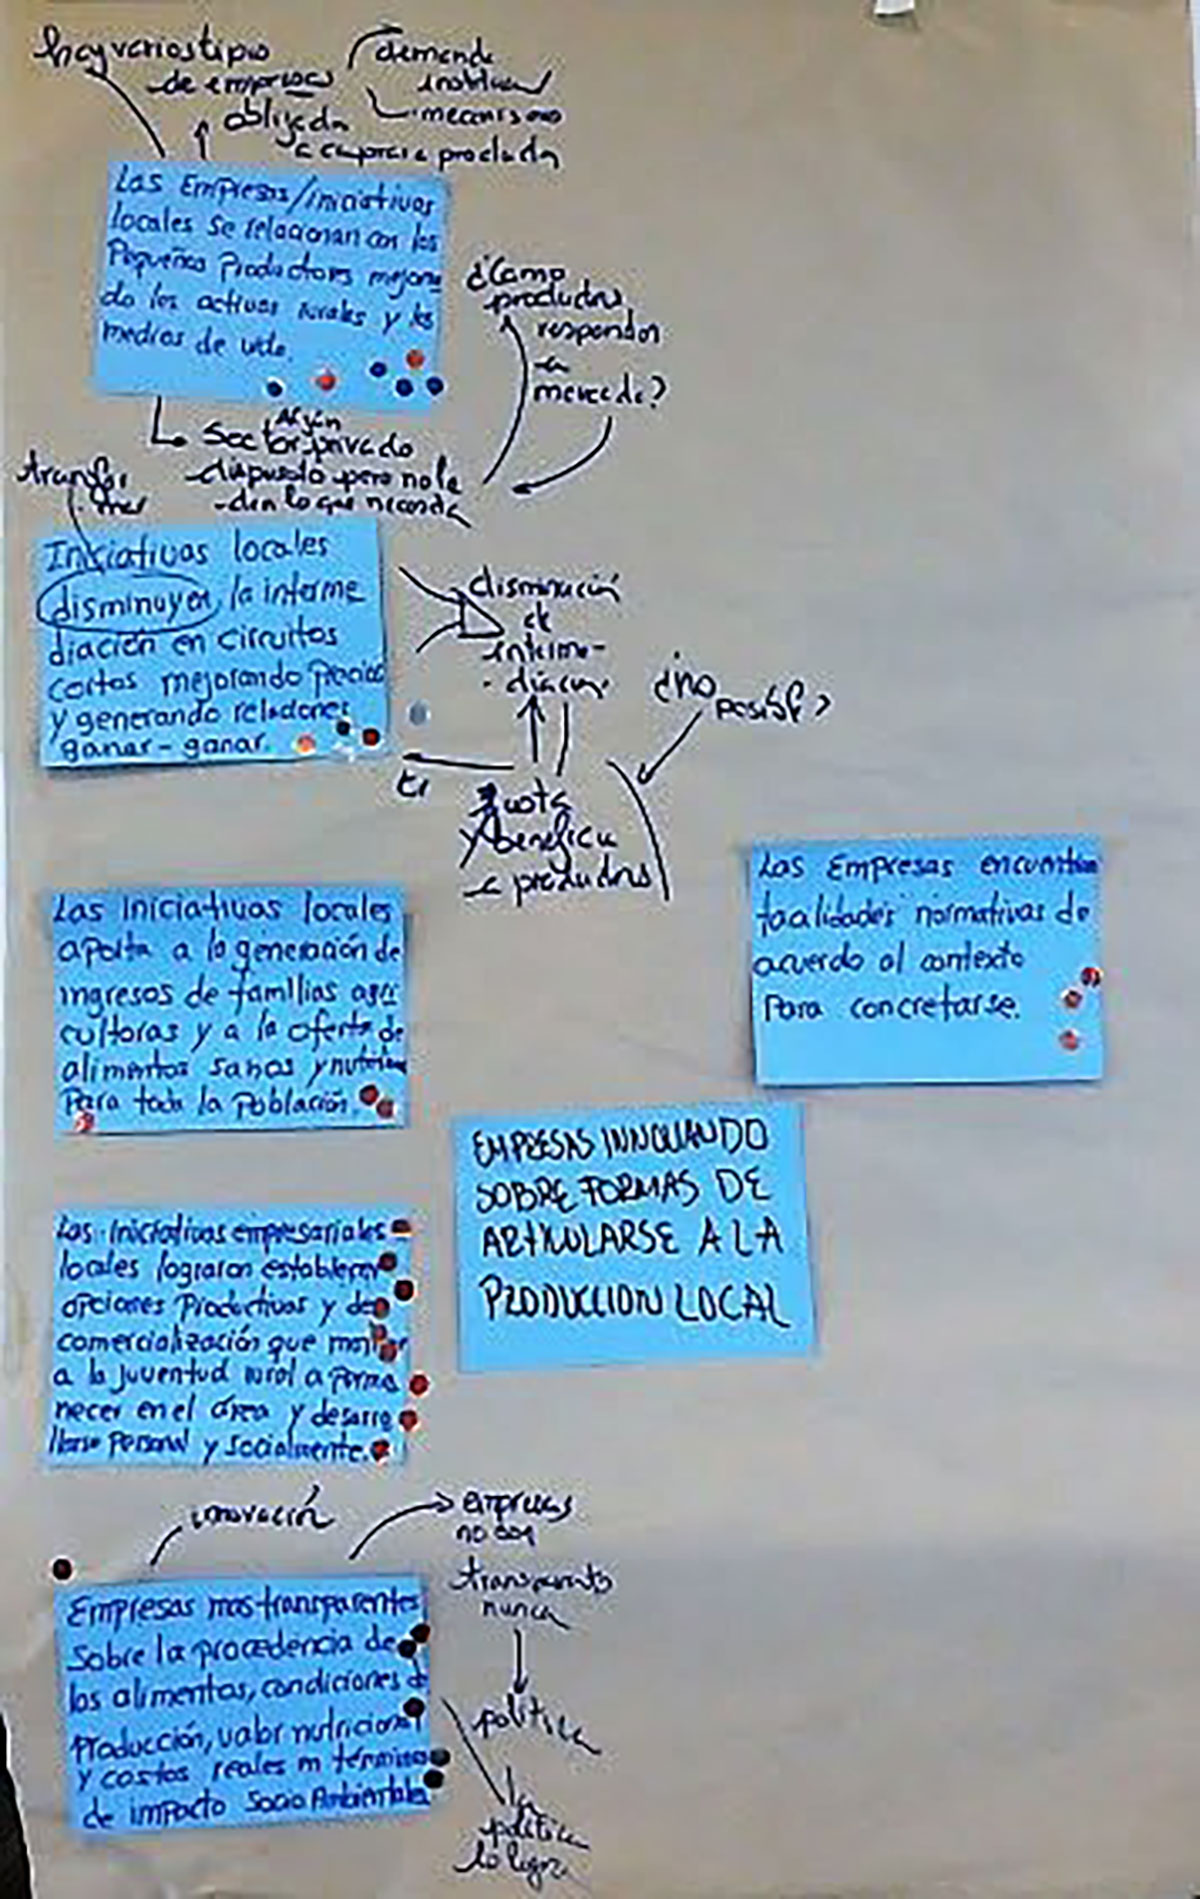 hay varios tipos
de empresas
obligada
a comprar a productor
demanda
instituc
mecanismo
Las Empresas/iniciativas
locales se relacionan con los
Pequeños Productores mejoran
do los activos rurales y los
medios de vida.
¿Como
productores
responden
a
mercado?
Algún
Sector privado
dispuesto pero no le
dan lo que necesita
transfor
mar
Iniciativas locales
disminuyen la interme
diación en circuitos
cortos mejorando precios
y generando relaciones
ganar - ganar.
disminución
de
interme-
diación
¿no
posible?
Justa
y beneficia
a productores
Las Iniciativas locales
aporta a la generación de
ingresos de familias agri
cultoras y a la oferta de
alimentos sanos y nutritivos
Para toda la Población.
Las Empresas encuentran
facilidades normativas de
acuerdo al contexto
Para concretarse.
EMPRESAS INNOVANDO
SOBRE FORMAS DE
ARTICULARSE A LA
PRODUCCION LOCAL
Las Iniciativas empresariales
locales lograron establecer
opciones Productivas y de
comercialización que
a la juventud rural a perma
necer en el área y desarro
llarse Personal y socialmente.
innovación
empresas
no son
transparentes
nunca
Empresas mas transparentes
Sobre la procedencia de
los alimentos, condiciones de
Producción, valor nutricional
y costos reales en términos
de impacto Socio Ambientales
política
política
lo logra